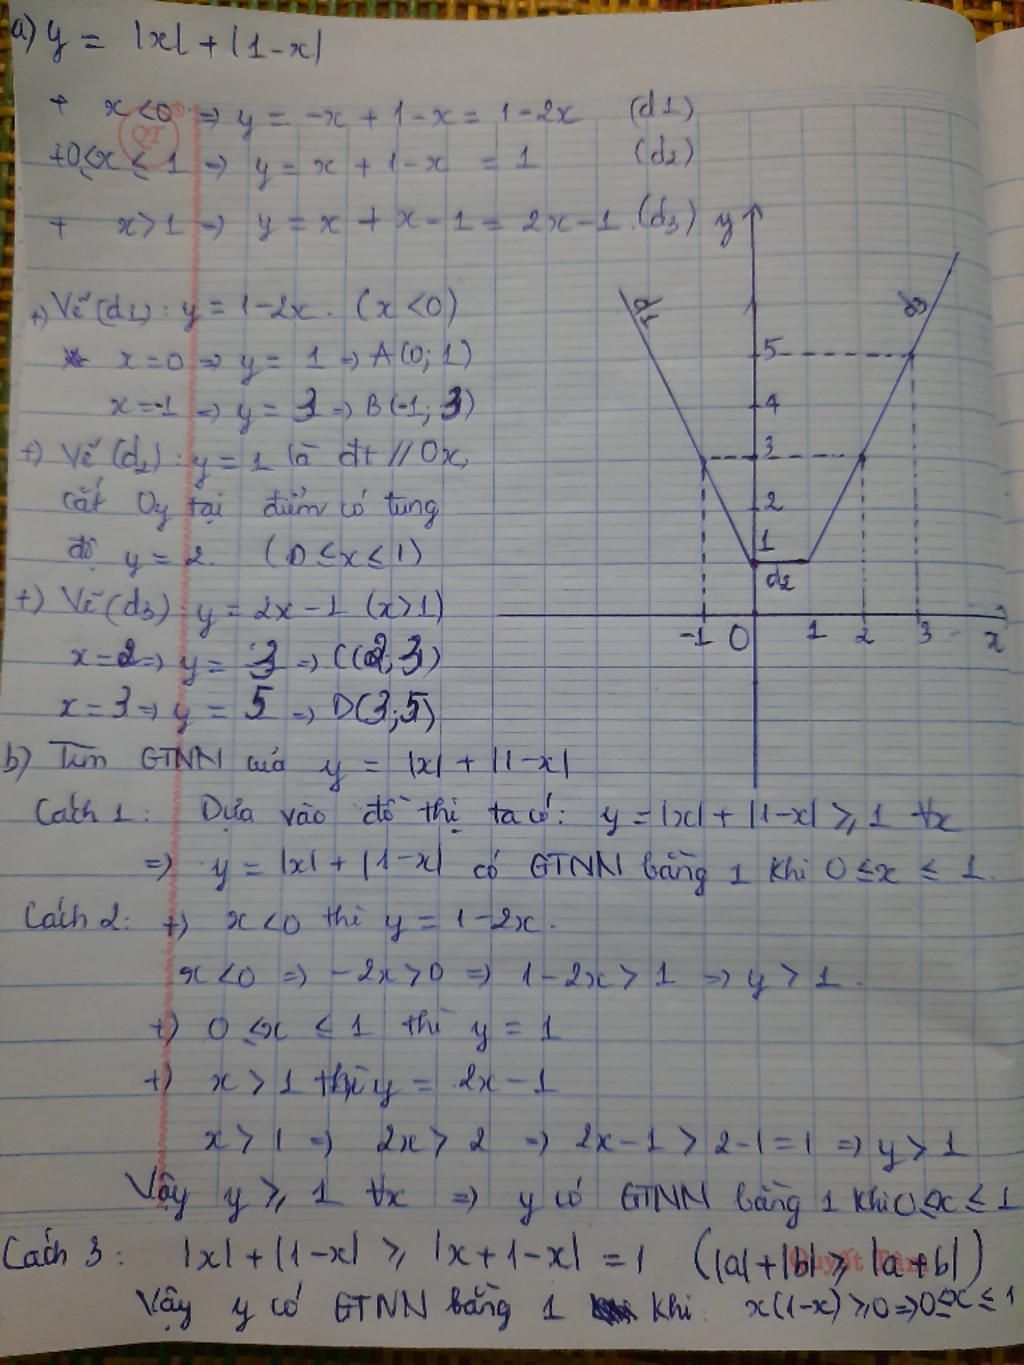 a) y = |x| + |1-x|
+ x<0 => y = -x + 1-x = 1-2x (d1)
+ 0≤x ≤ 1 => y = x + 1-x = 1 (d2)
+ x>1 => y = x + x-1 = 2x-1. (d3)
+) Vẽ (d1): y = 1-2x. (x<0)
x=0 => y = 1 => A(0; 1)
x=-1 => y = 3 => B(-1; 3)
+) Vẽ (d2): y = 1 là đt // Ox,
cắt Oy tại điểm có tung
độ y = 2. (0 ≤x ≤ 1)
+) Vẽ (d3): y = 2x-1 (x>1)
x=2 => y = 3 => C(2; 3)
x=3 => y = 5 => D(3; 5)
y
d1
d3
5
4
3
2
1
d2
-1 0 1 2 3 x
b) Tìm GTNN của y = |x| + |1-x|
Cách 1: Dựa vào đồ thị ta có: y = |x| + |1-x| ≥ 1 ∀x
=> y = |x| + |1-x| có GTNN bằng 1 khi 0≤x ≤ 1.
Cách 2: +) x<0 thì y = 1-2x.
x<0 => -2x>0 => 1-2x > 1 => y > 1.
+) 0 ≤x ≤ 1 thì y = 1
+) x > 1 thì y = 2x-1
x > 1 => 2x > 2 => 2x-1 > 2-1=1 => y > 1
Vậy y ≥ 1 ∀x => y có GTNN bằng 1 khi 0≤x ≤ 1
Cách 3: |x| + |1-x| ≥ |x+1-x| = 1 (|a|+|b| ≥ |a+b|)
Quyết Tâm
Vậy y có GTNN bằng 1 khi: x(1-x) ≥0 => 0≤x≤1